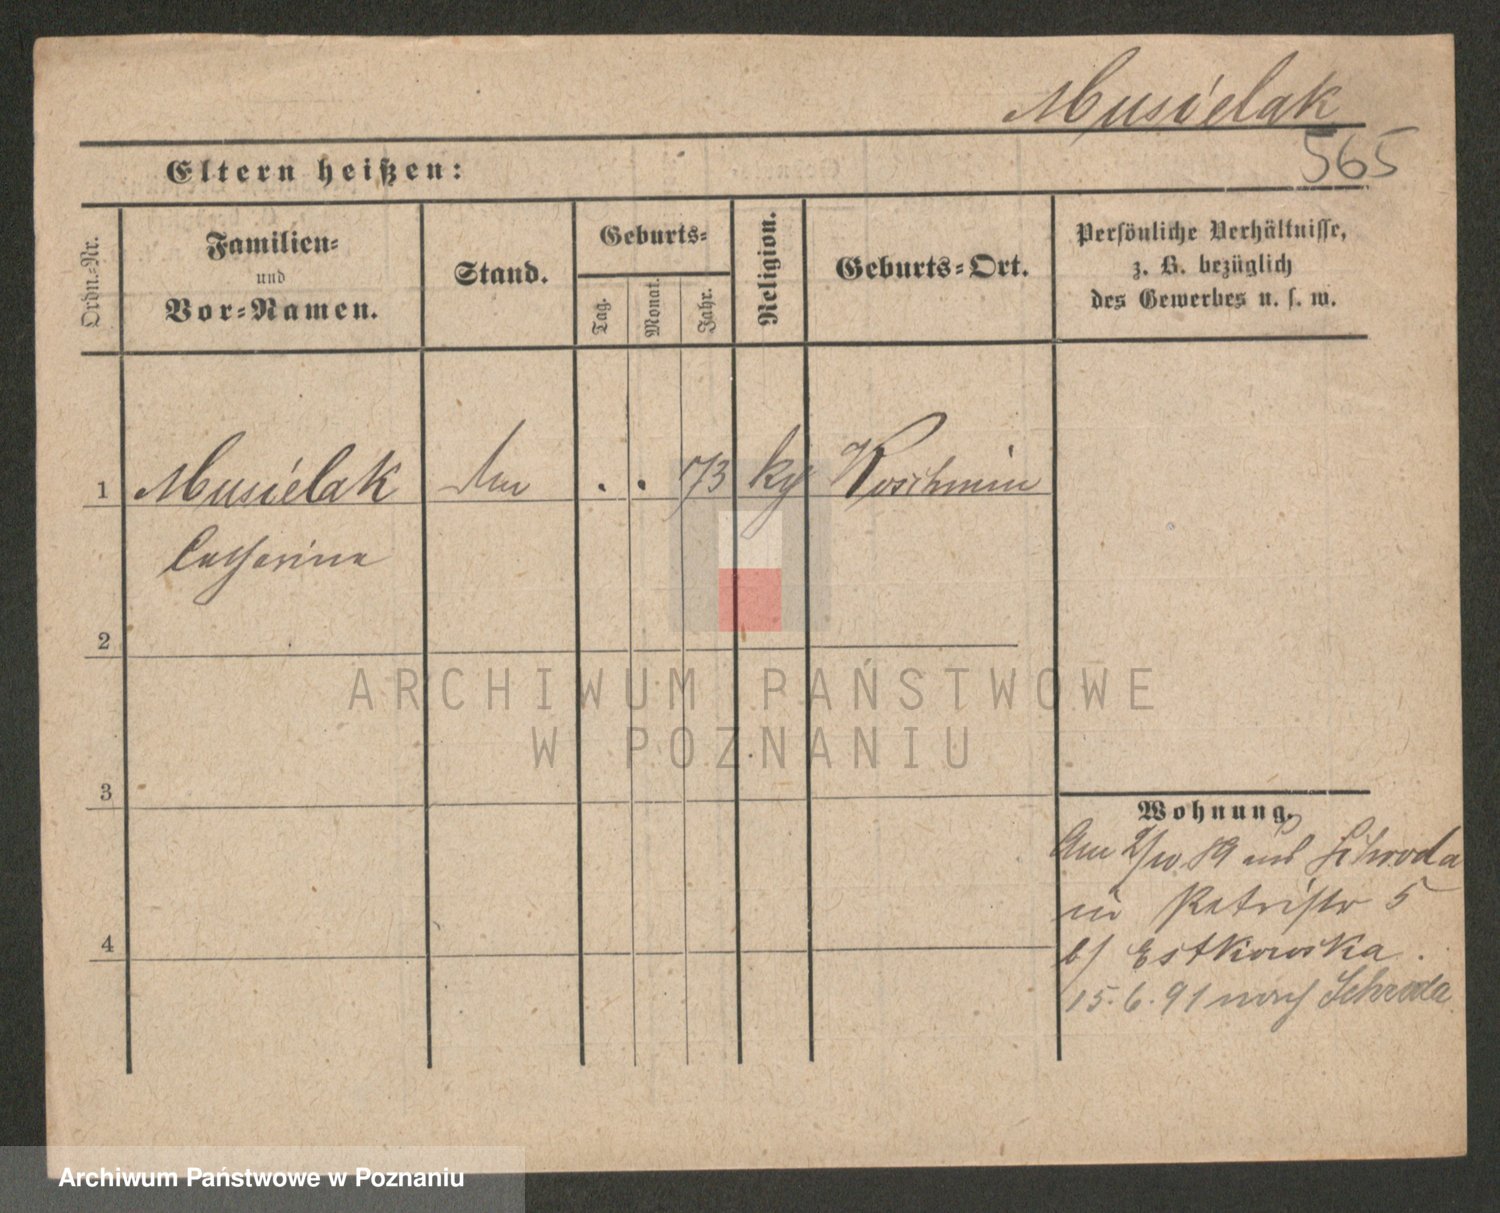 Musielak
565
Eltern heißen:
Ordn.-Nr.
Familien-
und
Vor-Namen.
Stand.
Geburts-
Tag.
Monat.
Jahr.
Religion.
Geburts-Ort.
Persönliche Verhältnisse,
z. B. bezüglich
des Gewerbes u. s. w.
1 Musielak . . 73 Koschmin
Catharina
2
ARCHIWUM PAŃSTWOWE
W POZNANIU
3
Wohnung.
Am 2/10 89 aus Schroda
in Petristr 5
b/ Estkowska.
4
15.6.91 nach Schroda
Archiwum Państwowe w Poznaniu